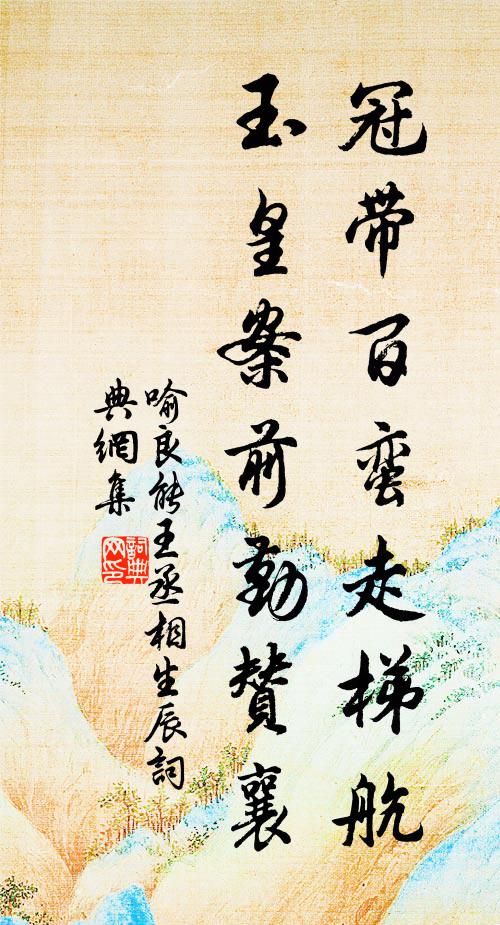 冠带百蛮走梯航
玉皇案前勤赞襄
喻良能王丞相生辰詞
典網集
詞典网印